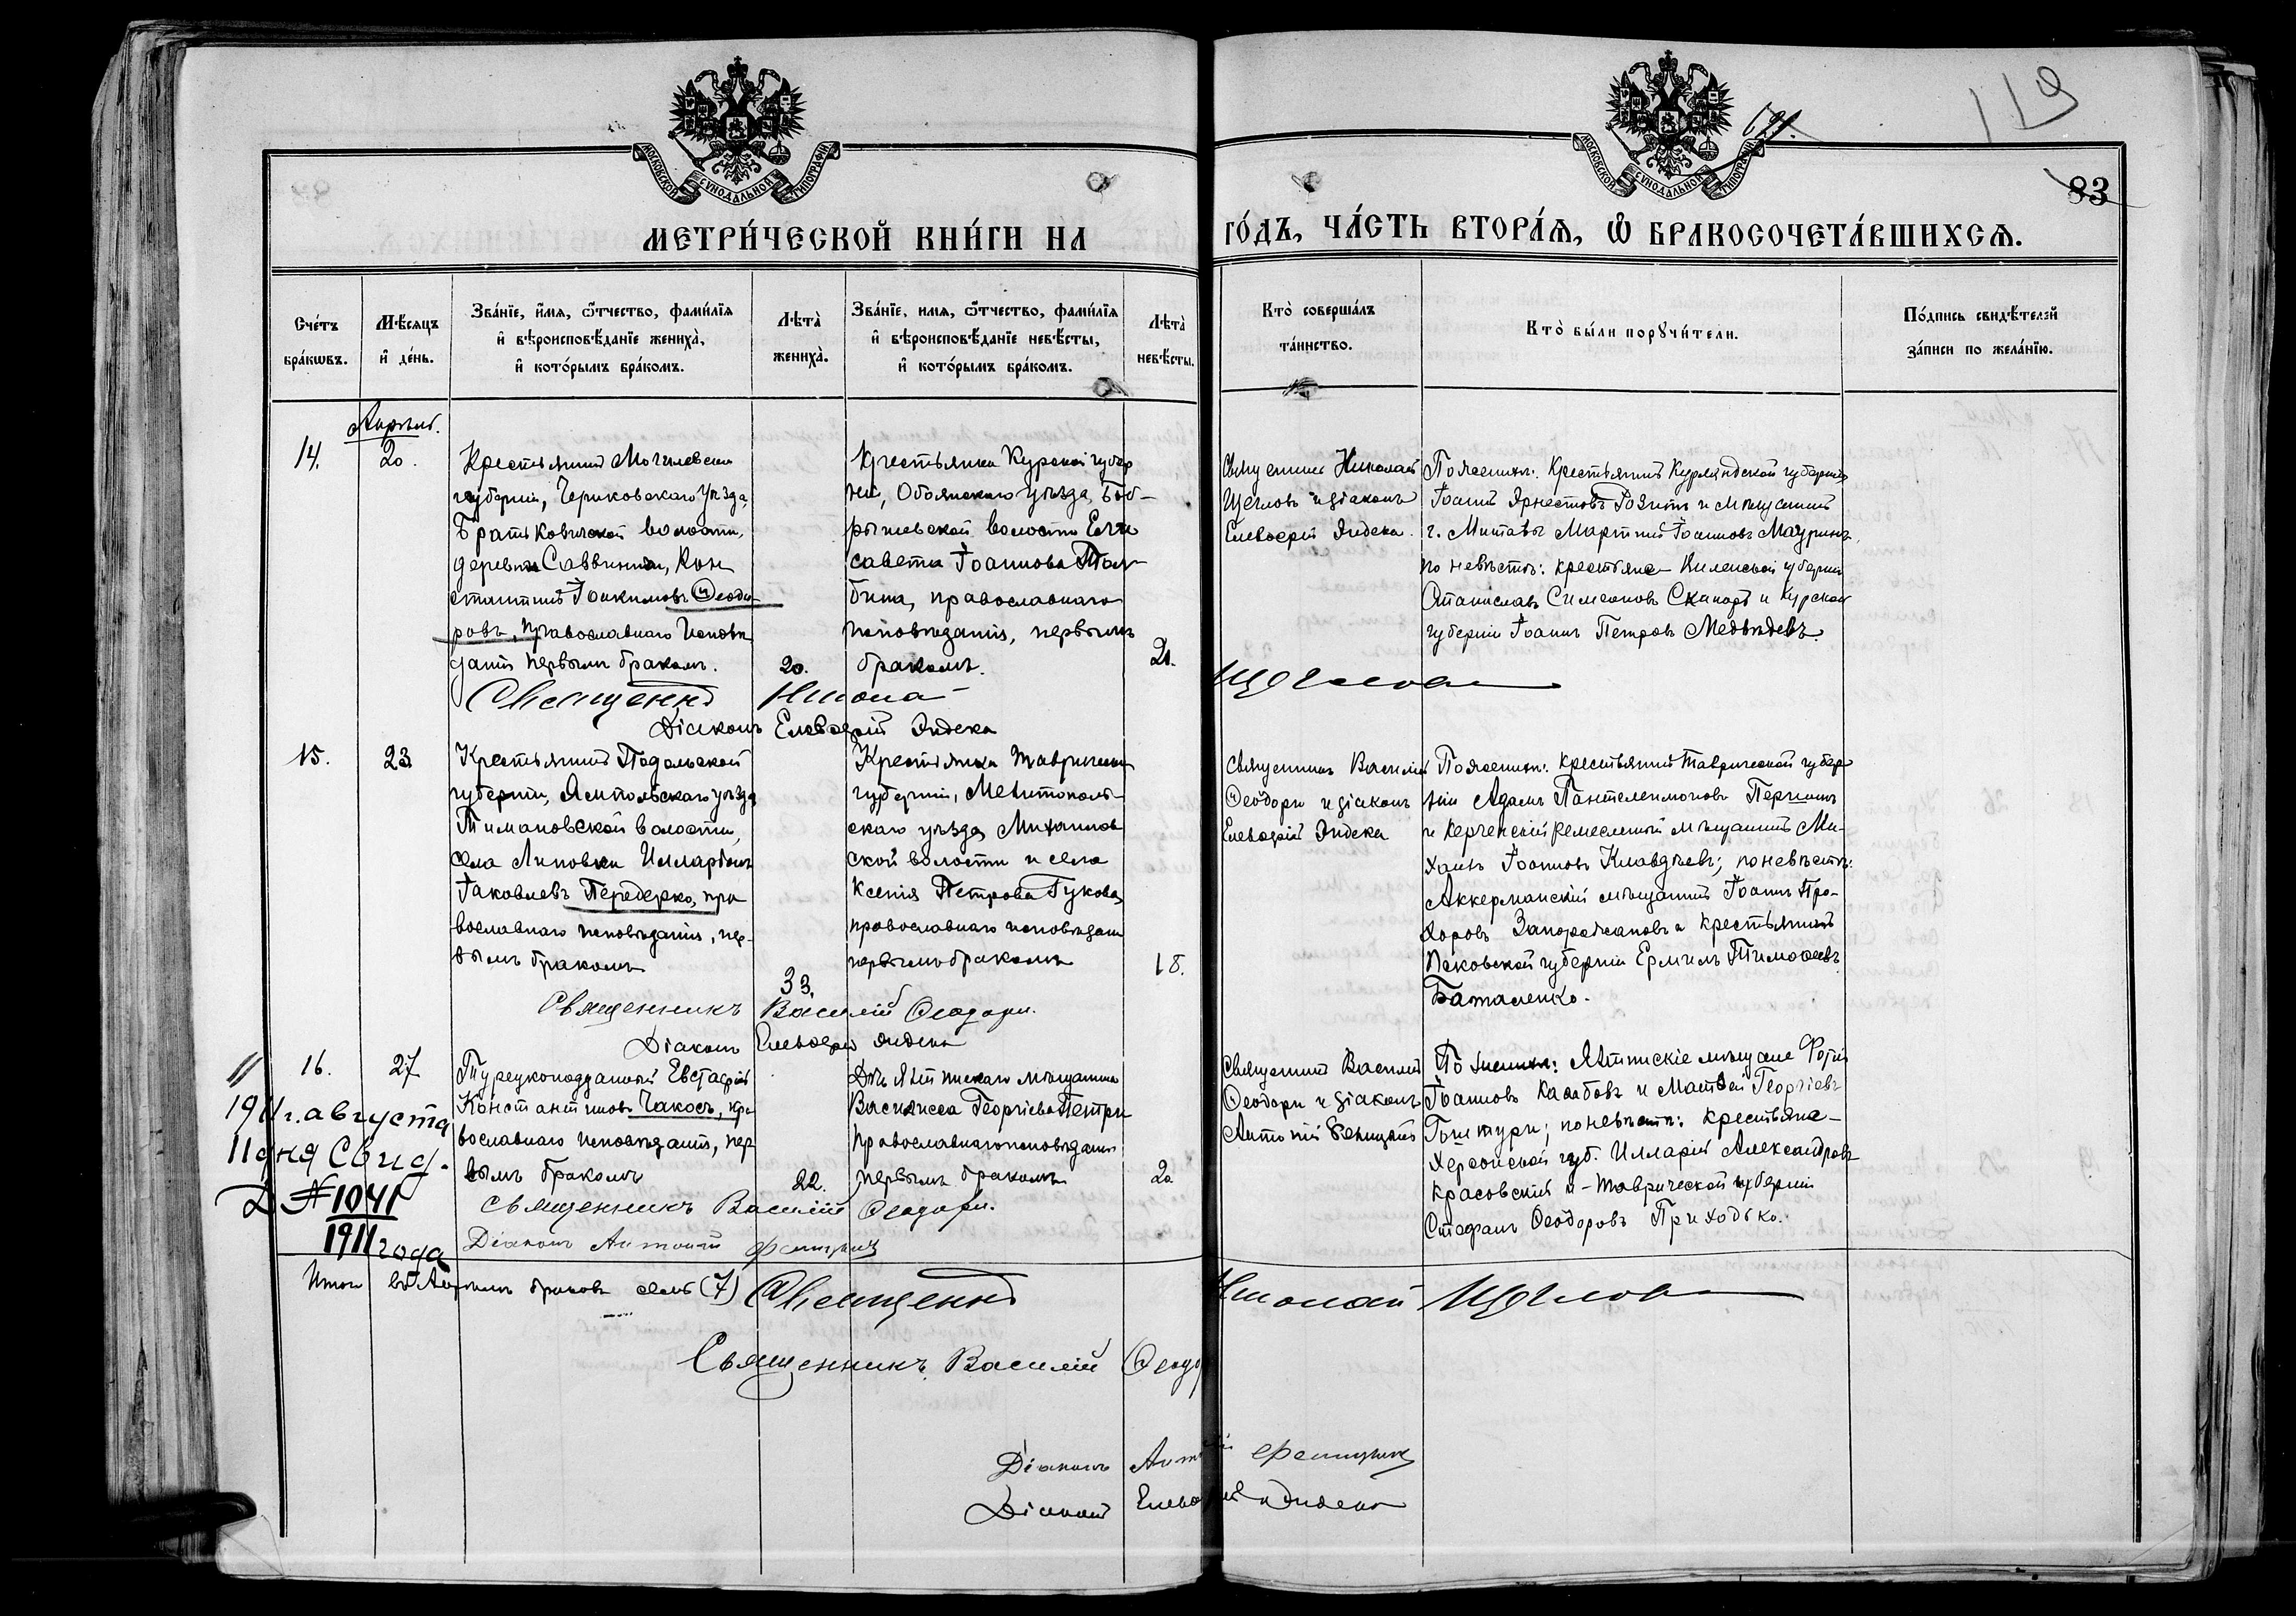 119
121.
83
МОСКОВСКОЙ СѴНОДАЛЬНОЙ ТИПОГРАФІИ
МОСКОВСКОЙ СѴНОДАЛЬНОЙ ТИПОГРАФІИ
МЕТРИ́ЧЕСКОЙ КНИ́ГИ НА
ГО́ДЪ, ЧА́СТЬ ВТОРА́Я, Ѽ БРАКОСОЧЕТА́ВШИХСЯ.
Сче́тъ
бра́кѡвъ.
Мѣ́сяцъ
и҆ де́нь.
Зва́нїе, и҆́мя, ѻ҆́тчество, фами́лїя
и҆ вѣроисповѣ́данїе жениха̀,
и҆ кото́рымъ бра́комъ.
Лѣта̀
жениха̀.
Зва́нїе, имя, ѻ҆́тчество, фами́лїя
и҆ вѣроисповѣ́данїе невѣ́сты,
и҆ кото́рымъ бра́комъ.
Лѣта̀
невѣ́сты.
Кто̀ соверша́лъ
та́инство.
Кто̀ бы́ли порꙋчи́тели.
По́дпись свидѣ́телей
за́писи по жела́нїю.
Апрѣль.
14.
20.
Крестьянинъ Могилевской
губерніи, Чериковскаго уѣзда,
Братьковичской волости,
деревни Саввинки, Кон
стантинъ Іоакимовъ Ѳеодо
ровъ, православнаго исповѣ
данія первымъ бракомъ.
20.
Крестьянка Курской губер
ніи, Обоянскаго уѣзда, Боб-
рышевской волости Ели
савета Іоаннова Тол
бина, православнаго
исповѣданія, первымъ
бракомъ.
21.
Священникъ Николай
Щегловъ и діаконъ
Елевѳерій Индека.
По женихѣ: крестьянинъ Курляндской губерніи
Іоаннъ Эрнестовъ Розитъ и мѣщанинъ
г. Митавы Мартинъ Іоанновъ Мауринъ,
по невѣстѣ: крестьяне Виленской губерніи
Станиславъ Симеоновъ Скипоръ и Курской
губерніи Іоаннъ Петровъ Медвѣдевъ.
Священникъ Николай Щегловъ
Діаконъ Елевѳерій Индека
15.
23.
Крестьянинъ Подольской
губерніи, Ямпольскаго уѣзда
Тимановской волости,
села Липовки Илларіонъ
Іаковлевъ Передерко, пра
вославнаго исповѣданія, пер-
вымъ бракомъ
33.
Крестьянка Таврической
губерніи, Мелитополь-
скаго уѣзда Михайлов
ской волости и села
Ксенія Петрова Гукова,
православнаго исповѣданія
первымъ бракомъ
18.
Священникъ Василій
Ѳеодори и діаконъ
Елевѳерій Индека
По женихѣ: крестьянинъ Таврической губер
ніи Адамъ Пантелеимоновъ
и Керченскій ремесленный мѣщанинъ Ми-
хаилъ Іоанновъ Клавдіевъ; по невѣстѣ:
Аккерманскій мѣщанинъ Іоаннъ Про-
хоровъ Запорожановъ и крестьянинъ
Псковской губерніи Ермилъ Тимоѳеевъ
Баталенко.
Священникъ Василій Ѳеодори.
Діаконъ Елевѳерій Индека
16.
27
Турецкоподданный Евстафій
Константиновъ Чакосъ, пра
вославнаго исповѣданія, пер
вымъ бракомъ
22.
Дочь Ялтинскаго мѣщанина
Василисса Георгіева Петри
православнаго исповѣданія
первымъ бракомъ
20
Священникъ Василій
Ѳеодори и діаконъ
Антоній
По женихѣ: Ялтинскіе мѣщане Фотій
Іоанновъ Калабовъ и Матвѣй Георгіевъ
; по невѣстѣ: крестьяне
Херсонской губ. Илларій Александровъ
Красовскій и Таврической губерніи
Стефанъ Ѳеодоровъ Приходько.
1911 г. августа
11 дня Свид.
Д №1041
1911 года
Священникъ Василій Ѳеодори.
Діаконъ Антоній
Итого въ Апрѣлѣ браковъ семь (7) Священникъ Николай Щегловъ
Священникъ Василій Ѳеодо
Діаконъ Антоній
Діаконъ Елевѳерій Индека